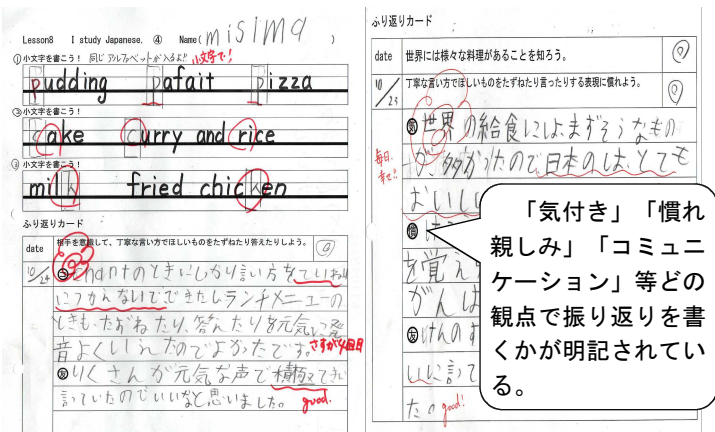 Lesson8 I study Japanese. ④ Name( misima )
①小文字を書こう! 同じアルファベットが入るよ!! 小文字で!
pudding pafait pizza
②小文字を書こう!
cake curry and rice
③小文字を書こう!
milk fried chicken
ふり返りカード
date 相手を意識して、丁寧な言い方でほしいものをたずねたり答えたりしよう。
10/24
のときにしっかり言い方をていねい
につかんないでできたしランチメニューの
ときも、たずねたり、答えたりを元気に発
音よくいえたのでよかったです。 さすが4回目
友 りくさんが元気な声で積極てきに
言っていたのでいいなと思いました。 good!
ふり返りカード
date 世界には様々な料理があることを知ろう。
10/23 丁寧な言い方でほしいものをたずねたり言ったりする表現に慣れよう。
気 世界の給食には、まずそうなもの
が、多かったので日本のは、とても
毎日、幸せ!!
おいし
慣
を覚え
がんば
友 けんのす
いに言って
たの good!
「気付き」「慣れ
親しみ」「コミュニ
ケーション」等どの
観点で振り返りを書
くかが明記されてい
る。